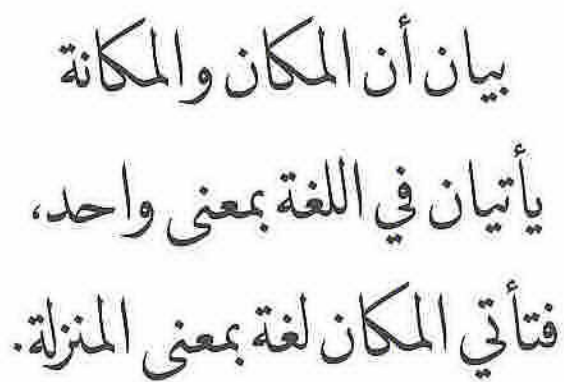 بيان أن المكان والمكانة
يأتيان في اللغة بمعنى واحد،
فتأتي المكان لغة بمعنى المنزلة.